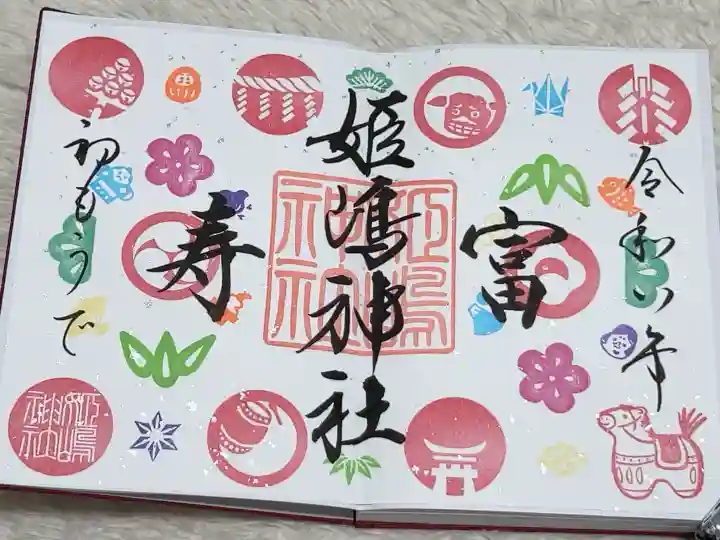 令和八年
富
姫嶋神社
姫嶋神社
寿
初もうで
姫嶋神社